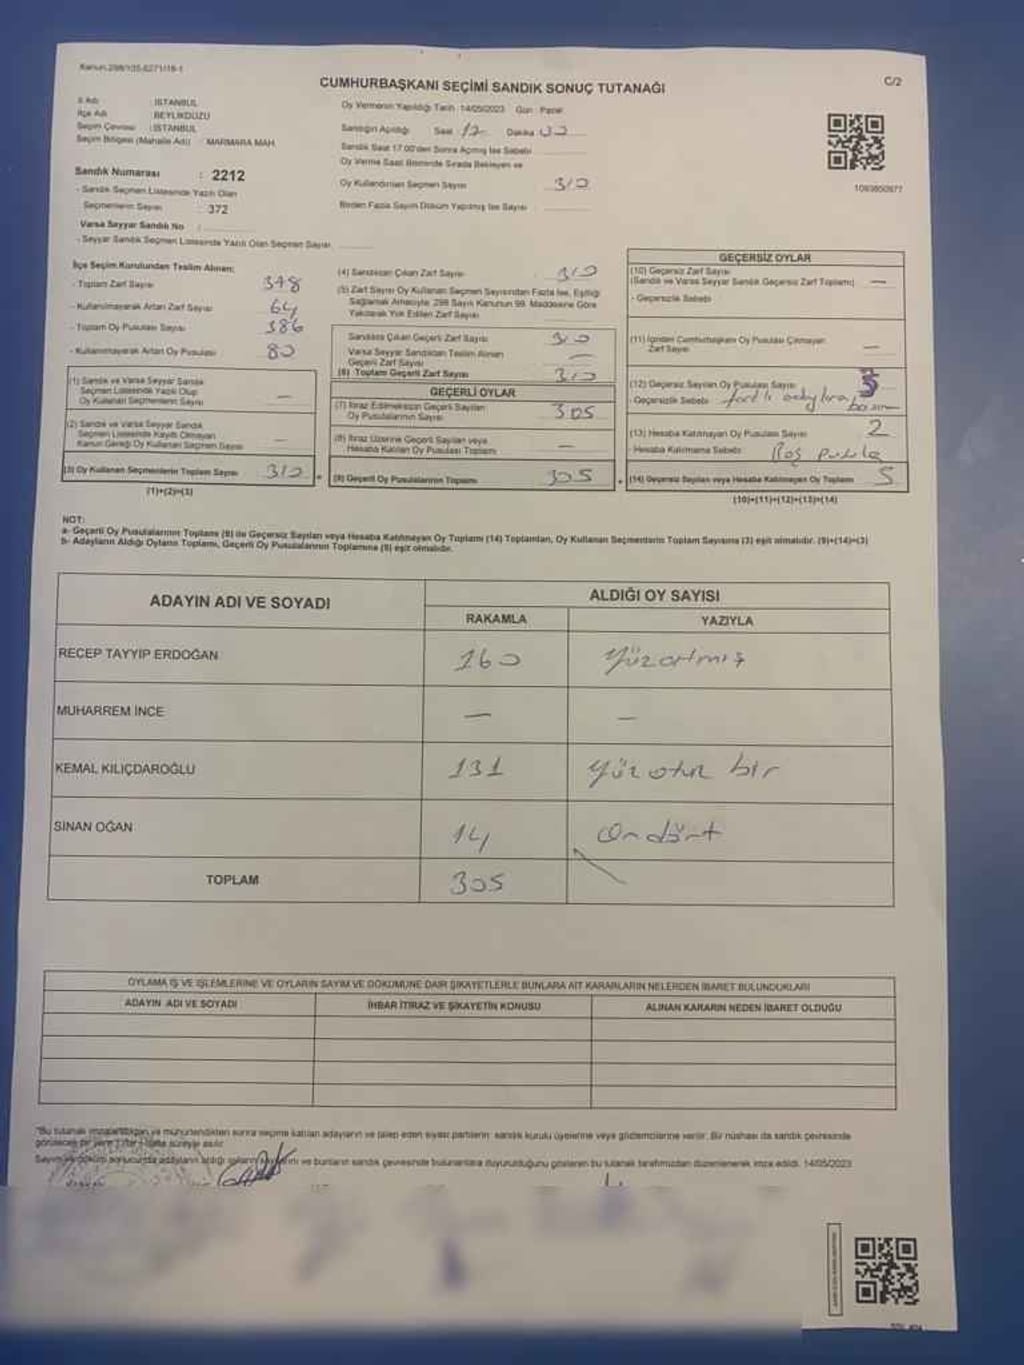 Kanun.298/105-6271/16-1
CUMHURBAŞKANI SEÇİMİ SANDIK SONUÇ TUTANAĞI
C/2
İl Adı : İSTANBUL
İlçe Adı : BEYLİKDÜZÜ
Seçim Çevresi : İSTANBUL
Seçim Bölgesi (Mahalle Adı) : MARMARA MAH.
Oy Vermenin Yapıldığı Tarih : 14/05/2023 Gün : Pazar
Sandığın Açıldığı Saat 17 Dakika
Sandık Saat 17:00'den Sonra Açılmış İse Sebebi
Oy Verme Saati Bitiminde Sırada Bekleyen ve
Oy Kullandırılan Seçmen Sayısı 310
Birden Fazla Sayım Döküm Yapılmış İse Sayısı
1093850977
Sandık Numarası : 2212
- Sandık Seçmen Listesinde Yazılı Olan
Seçmenlerin Sayısı : 372
Varsa Seyyar Sandık No :
- Seyyar Sandık Seçmen Listesinde Yazılı Olan Seçmen Sayısı
İlçe Seçim Kurulundan Teslim Alınan:
- Toplam Zarf Sayısı 378
- Kullanılmayarak Artan Zarf Sayısı 64
- Toplam Oy Pusulası Sayısı 386
- Kullanılmayarak Artan Oy Pusulası 80
(1) Sandık ve Varsa Seyyar Sandık
Seçmen Listesinde Yazılı Olup
Oy Kullanan Seçmenlerin Sayısı —
(2) Sandık ve Varsa Seyyar Sandık
Seçmen Listesinde Kayıtlı Olmayan
Kanun Gereği Oy Kullanan Seçmen Sayısı —
(3) Oy Kullanan Seçmenlerin Toplam Sayısı 310
(1)+(2)=(3)
(4) Sandıktan Çıkan Zarf Sayısı 310
(5) Zarf Sayısı Oy Kullanan Seçmen Sayısından Fazla İse, Eşitliği
Sağlamak Amacıyla; 298 Sayılı Kanunun 99. Maddesine Göre
Yakılarak Yok Edilen Zarf Sayısı
Sandıkta Çıkan Geçerli Zarf Sayısı 310
Varsa Seyyar Sandıktan Teslim Alınan
Geçerli Zarf Sayısı —
(6) Toplam Geçerli Zarf Sayısı 310
GEÇERLİ OYLAR
(7) İtiraz Edilmeksizin Geçerli Sayılan
Oy Pusulalarının Sayısı 305
(8) İtiraz Üzerine Geçerli Sayılan veya
Hesaba Katılan Oy Pusulası Toplamı —
(9) Geçerli Oy Pusulalarının Toplamı 305
GEÇERSİZ OYLAR
(10) Geçersiz Zarf Sayısı
(Sandık ve Varsa Seyyar Sandık Geçersiz Zarf Toplamı) —
- Geçersizlik Sebebi
(11) İçinden Cumhurbaşkanı Oy Pusulası Çıkmayan
Zarf Sayısı —
(12) Geçersiz Sayılan Oy Pusulası Sayısı 3
- Geçersizlik Sebebi farklı adaylara
(13) Hesaba Katılmayan Oy Pusulası Sayısı 2
- Hesaba Katılmama Sebebi Boş pusula
(14) Geçersiz Sayılan veya Hesaba Katılmayan Oy Toplamı 5
(10)+(11)+(12)+(13)=(14)
NOT:
a- Geçerli Oy Pusulalarının Toplamı (9) ile Geçersiz Sayılan veya Hesaba Katılmayan Oy Toplamı (14) Toplamları, Oy Kullanan Seçmenlerin Toplam Sayısına (3) eşit olmalıdır. (9)+(14)=(3)
b- Adayların Aldığı Oyların Toplamı, Geçerli Oy Pusulalarının Toplamına (9) eşit olmalıdır.
ADAYIN ADI VE SOYADI
ALDIĞI OY SAYISI
RAKAMLA YAZIYLA
RECEP TAYYİP ERDOĞAN 160 Yüzatmış
MUHARREM İNCE — —
KEMAL KILIÇDAROĞLU 131 Yüz otuz bir
SİNAN OĞAN 14 On dört
TOPLAM 305
OYLAMA İŞ VE İŞLEMLERİNE VE OYLARIN SAYIM VE DÖKÜMÜNE DAİR ŞİKAYETLERLE BUNLARA AİT KARARLARIN NELERDEN İBARET BULUNDUKLARI
ADAYIN ADI VE SOYADI İHBAR İTİRAZ VE ŞİKAYETİN KONUSU ALINAN KARARIN NEDEN İBARET OLDUĞU
*Bu tutanak imzalandıktan ve mühürlendikten sonra seçime katılan adayların ve talep eden siyasi partilerin sandık kurulu üyelerine veya gözlemcilerine verilir. Bir nüshası da sandık çevresinde
görülecek bir yere 1 (bir) hafta süreyle asılır.
ve bunların sandık çevresinde bulunanlara duyurulduğunu gösteren bu tutanak tarafımızdan düzenlenerek imza edildi. 14/05/2023